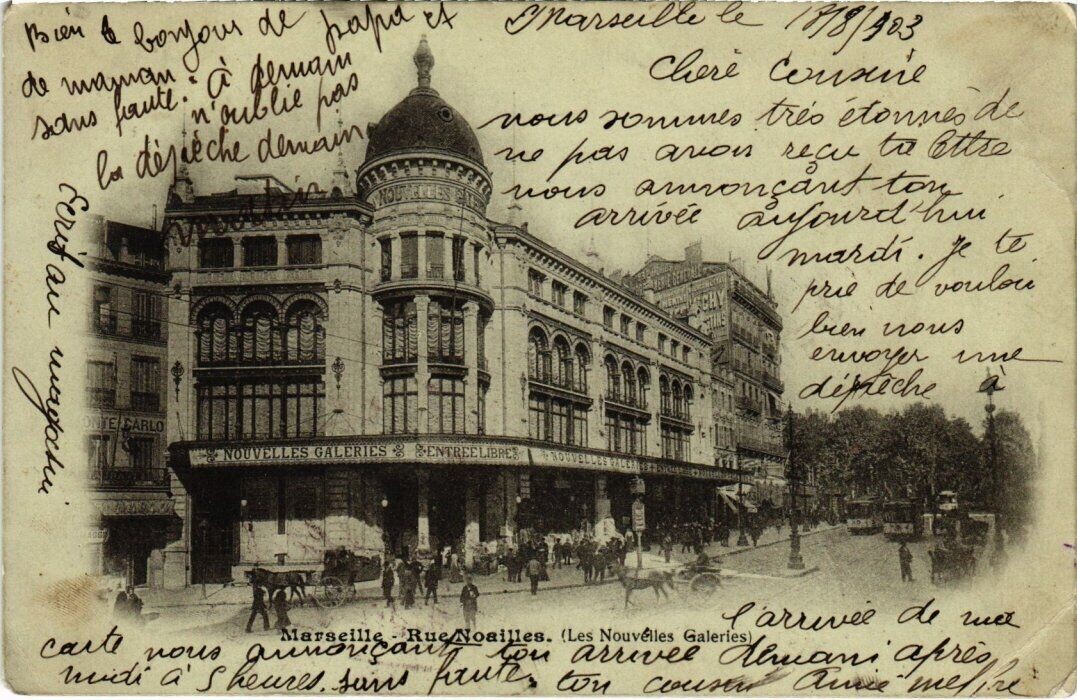 Marseille le 18/8/903
Chère Cousine
nous sommes très étonnés de
ne pas avoir reçu ta lettre
nous annonçant ton
arrivée aujourd'hui
mardi. Je te
prie de vouloir
bien nous
envoyer une
dépêche à
l'arrivée de ma
carte nous annonçant ton arrivée demani après
midi à 5 heures. sans faute. ton cousin
Bien le bonjour de papa et
de maman. À demain
sans faute. n'oublie pas
la dépêche demain
Ecris au magasin
NOUVELLES
NOUVELLES GALERIES
ENTREE LIBRE
NOUVELLES GALERIES
MONTE CARLO
VICHY
Marseille - Rue Noailles. (Les Nouvelles Galeries)